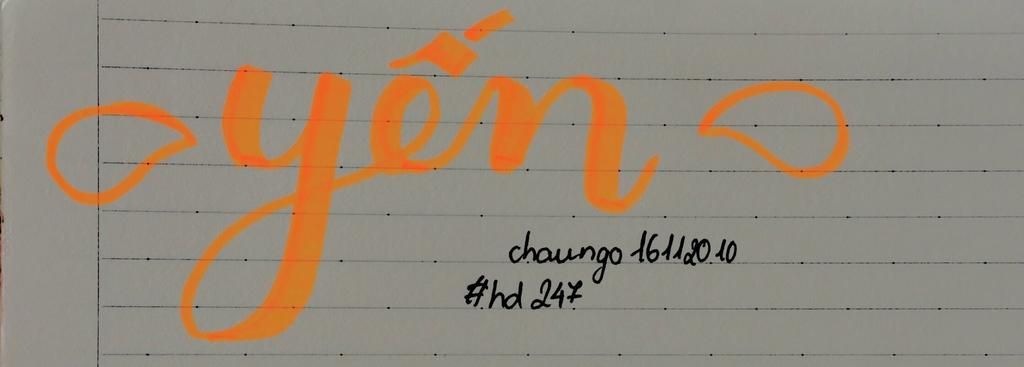 yến
chaungo16112010
#hd 247